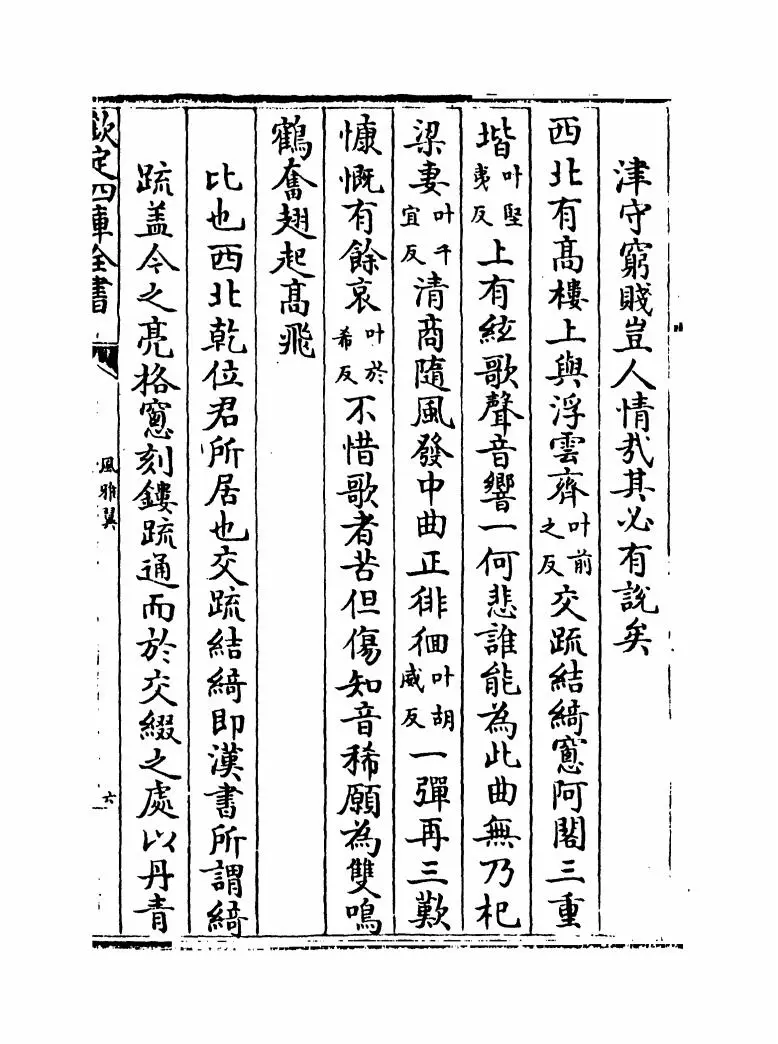 津守窮賤豈人情哉其必有説矣
西北有髙樓上與浮雲齊叶前之反交疏結綺窻阿閣三重
堦叶堅夷反上有絃歌聲音響一何悲誰能為此曲無乃杞
梁妻叶千宜反清商隨風發中曲正徘徊叶胡威反一彈再三歎
慷慨有餘哀叶於希反不惜歌者苦但傷知音稀願為雙鳴
鶴奮翅起髙飛
比也西北乾位君所居也交疏結綺即漢書所謂綺
疏盖今之亮格窻刻鏤疏通而於交綴之處以丹青
欽定四庫全書
風雅翼
六